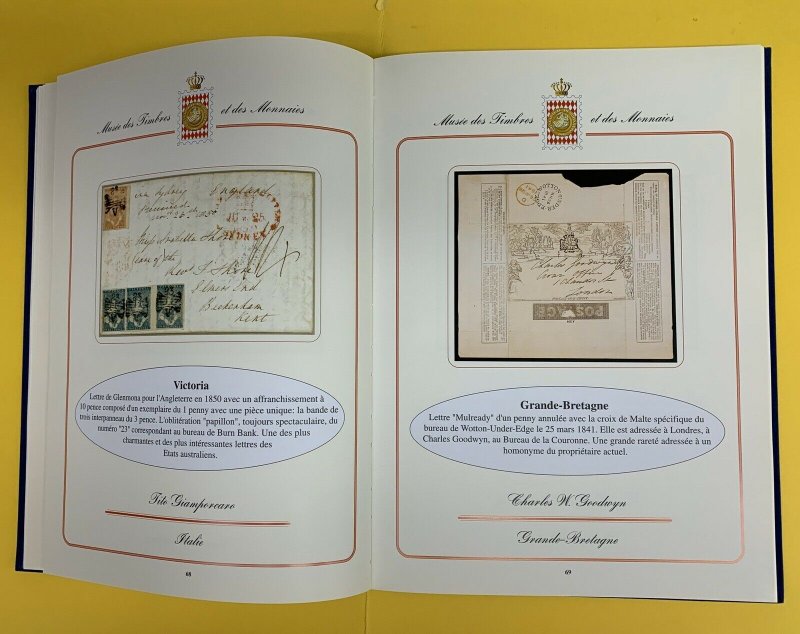 Musée des Timbres et des Monnaies
via Sydney England
Miss Arabella Shore
Revd T. Shore
Elmers End
Beckenham
Kent
SYDNEY
Victoria
Lettre de Glenmona pour l'Angleterre en 1850 avec un affranchissement à
10 pence composé d'un exemplaire du 1 penny avec une pièce unique: la bande de
trois interpanneau du 3 pence. L'oblitération "papillon", toujours spectaculaire, du
numéro "23" correspondant au bureau de Burn Bank. Une des plus
charmantes et des plus intéressantes lettres des
Etats australiens.
Tito Giamporcaro
Italie
68
Musée des Timbres et des Monnaies
WOTTON
UNDER EDGE
Charles Goodwyn
Crown Office
London
POSTAGE
Grande-Bretagne
Lettre "Mulready" d'un penny annulée avec la croix de Malte spécifique du
bureau de Wotton-Under-Edge le 25 mars 1841. Elle est adressée à Londres, à
Charles Goodwyn, au Bureau de la Couronne. Une grande rareté adressée à un
homonyme du propriétaire actuel.
Charles W. Goodwyn
Grande-Bretagne
69